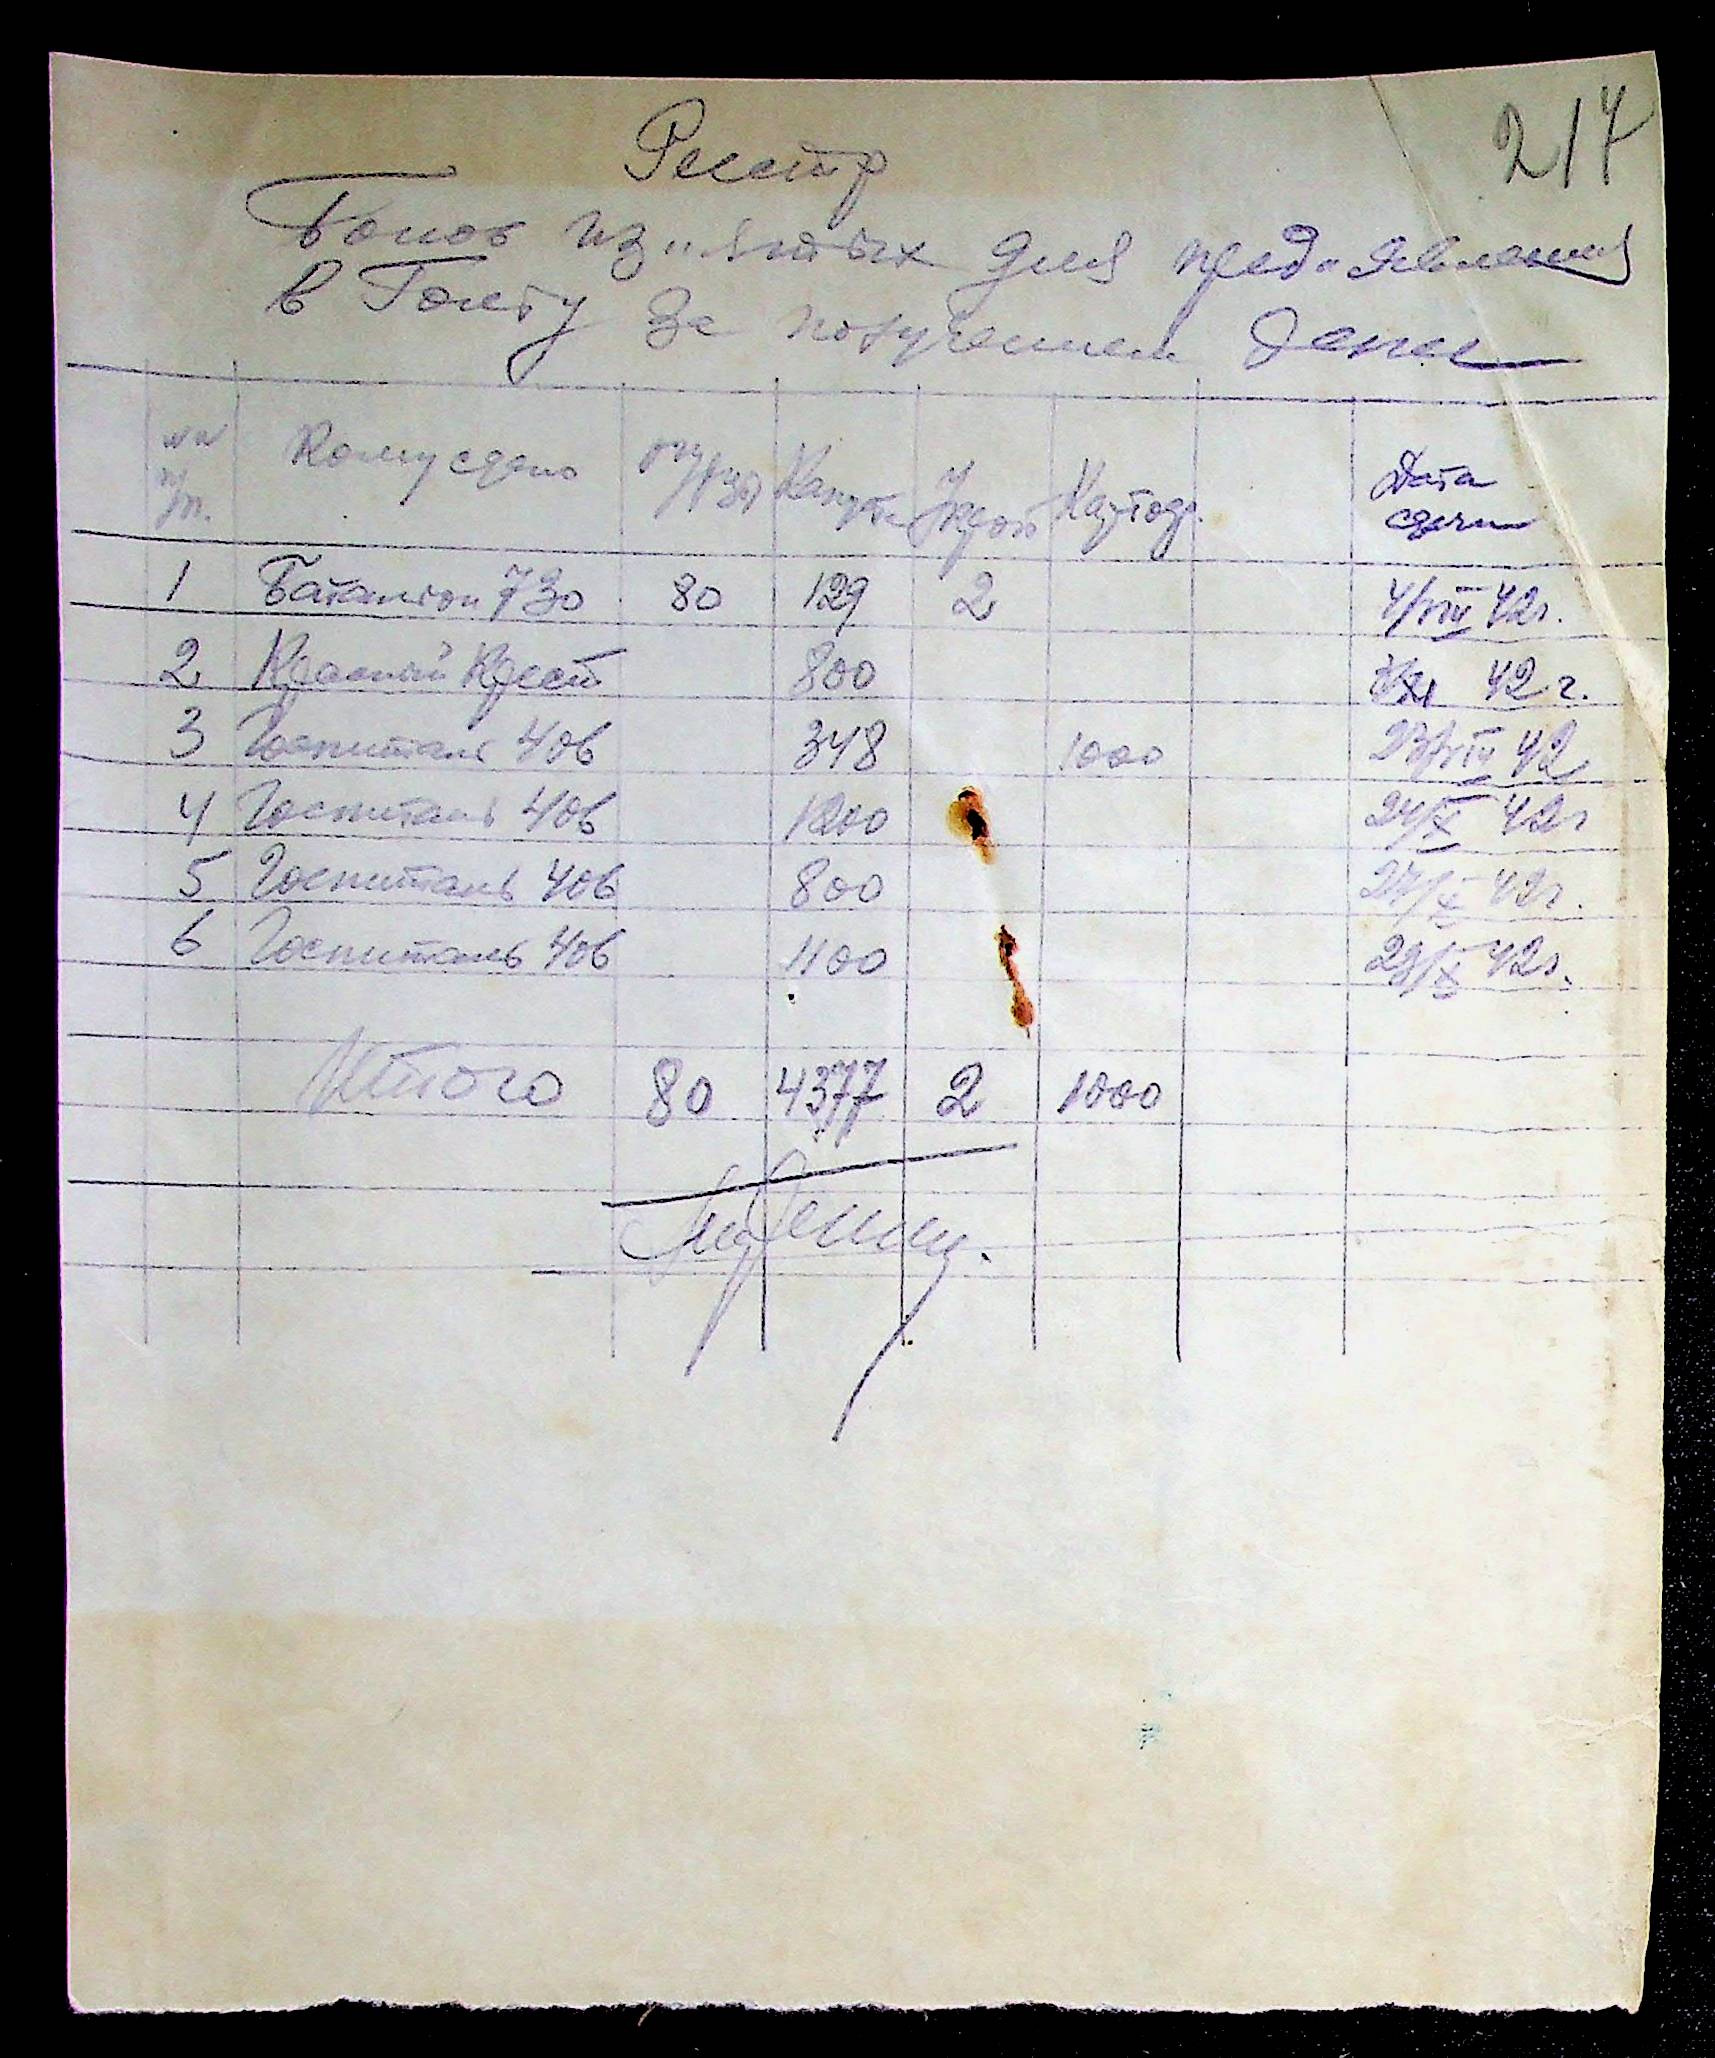 217
Реестр
Бонов из"ятых для пред"явления
в Голту за получением денег
№№ п/п. Кому сдано огурцы Капуста Укроп Картоф. Дата сдачи
1 Батальон 730 80 129 2 4/VIII 42г.
2 Красный Крест 800 42 г.
3 Госпиталь 406 348 1000 23/VIII 42
4 Госпиталь 406 1200 24/X 42г
5 Госпиталь 406 800 27/X 42г.
6 Госпиталь 406 1100 29/X 42г.
Итого 80 4377 2 1000